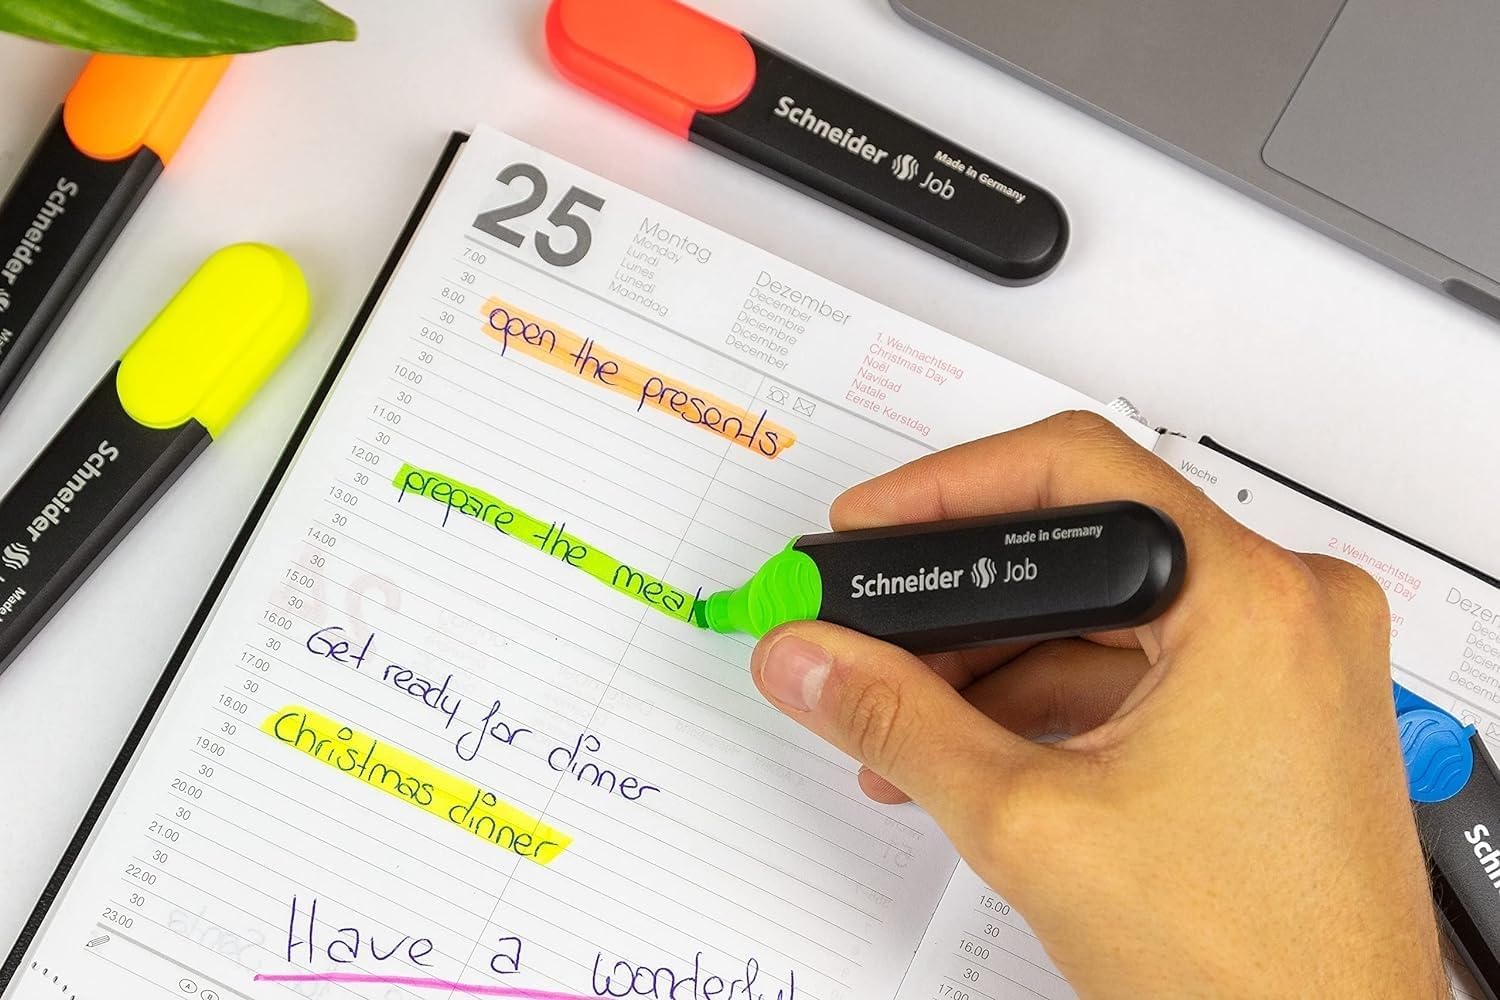 Schneider Job
Made in Germany
Schneider
Schneider
Made
25
Montag
Monday
Lundi
Lunes
Lunedi
Maandag
Dezember
December
Décembre
Diciembre
Dicembre
December
1. Weihnachtstag
Christmas Day
Noël
Navidad
Natale
Eerste Kerstdag
7.00
30
8.00
30
9.00
30
10.00
30
11.00
30
12.00
30
13.00
30
14.00
30
15.00
30
16.00
30
17.00
30
18.00
30
19.00
30
20.00
30
21.00
30
22.00
30
23.00
open the presents
prepare the meal
Get ready for dinner
Christmas dinner
Have a wonderful
Made in Germany
Schneider Job
Woche
2. Weihnachtstag
15.00
30
16.00
30
17.00